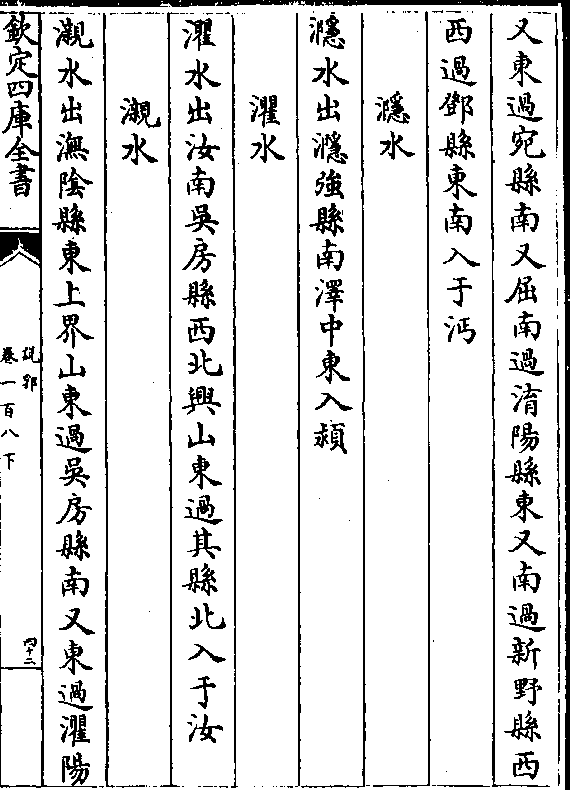 又東過宛縣南又屈南過淯陽縣東又南過新野縣西
西過鄧縣東南入于沔
濦水
濦水出濦強縣南澤中東入潁
灈水
灈水出汝南吳房縣西北興山東過其縣北入于汝
瀙水
瀙水出潕陰縣東上界山東過吳房縣南又東過灈陽
欽定四庫全書
說郛
卷一百八下
四十二